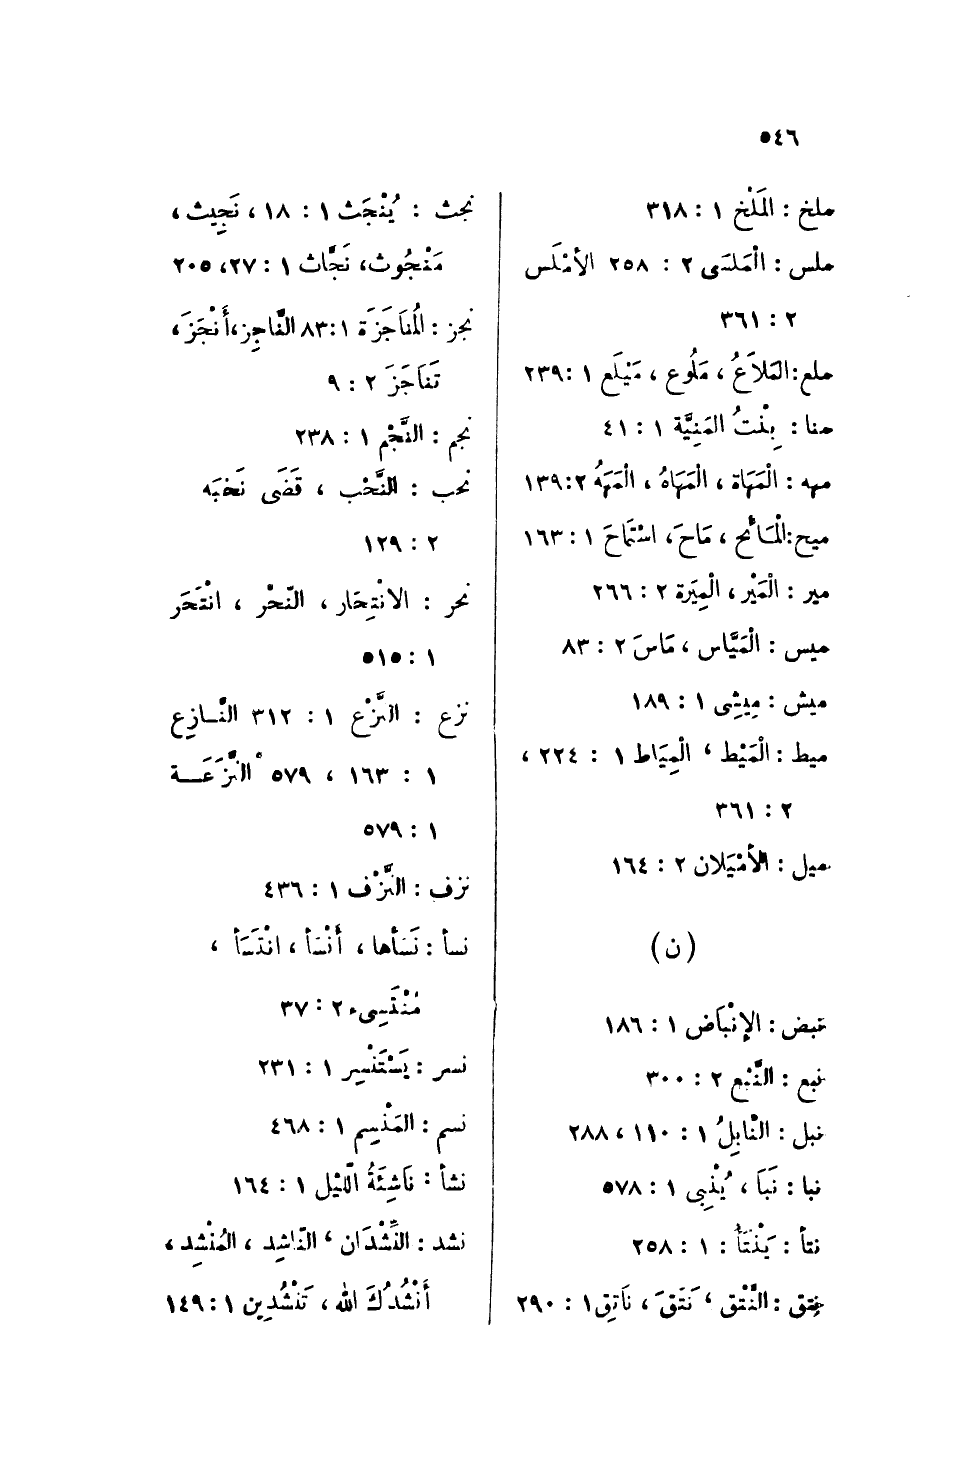 ٥٤٦
ملخ : المَلْخ ١ : ٣١٨
ملس : الْمَلَسَى ٢ : ٢٥٨ الأمْلَس
٢ : ٣٦١
ملع : المَلاَعُ ، مَلُوع ، مَيْلَع ١ : ٢٣٩
منا : بِنْتُ المَنِيَّة ١ : ٤١
مهه : الْمَهَاة ، الْمَهَاهُ ، الْمَهَهُ ٢ : ١٣٩
ميح : الْمَائح ، مَاحَ ، اسْتَمَاحَ ١ : ١٦٣
مير : الْمَيْر ، الْمِيَرة ٢ : ٢٦٦
ميس : الْمَيَّاس ، مَاسَ ٢ : ٨٣
ميش : مِيشِى ١ : ١٨٩
ميط : الْمَيْط ، الْمِيَاط ١ : ٢٢٤ ،
٢ : ٣٦١
ميل : الأَمْيَلان ٢ : ١٦٤
(ن)
نبض : الإنْبَاض ١ : ١٨٦
نبع : النَّبْع ٢ : ٣٠٠
نبل : النَّابِلُ ١ : ١١٠ ، ٢٨٨
نبا : نَبَا ، يُنْبِى ١ : ٥٧٨
نتأ : يَنْتَأُ : ١ : ٢٥٨
نتق : النَّتْق ، نَتَقَ ، نَاتِق ١ : ٢٩٠
نجث : يُنْجَث ١ : ١٨ ، نَجِيث ،
مَنْجُوث ، نَجَّاث ١ : ٢٧ ، ٢٠٥
نجز : المُنَاجَزَة ١ : ٨٣ النَّاجِز ، أَنْجَزَ ،
تَنَاجَزَ ٢ : ٩
نجم : النَّجْم ١ : ٢٣٨
نحب : النَّحْب ، قَضَى نَحْبَه
٢ : ١٢٩
نحر : الانْتِحَار ، النّحْر ، انْتَحَر
١ : ٥١٥
نزع : النَّزْع ١ : ٣١٢ النَّازِع
١ : ١٦٣ ، ٥٧٩ النَّزَعَة
١ : ٥٧٩
نزف : النَّزْف ١ : ٤٣٦
نسأ : نَسَأها ، أَنْسَأ ، انْتَسَأ ،
مُنْتَسِىء ٢ : ٣٧
نسر : يَسْتَنْسِر ١ : ٢٣١
نسم : المَنْسِم ١ : ٤٦٨
نشأ : نَاشِئَةُ الّليْل ١ : ١٦٤
نشد : النِّشْدَان ، النّاشِد ، المُنْشِد ،
أَنْشُدُكَ الله ، تَنْشُدِين ١ : ١٤٩